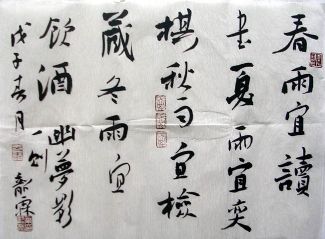 春雨宜讀
書夏雨宜奕
棋秋雨宜檢
藏冬雨宜
飲酒 幽夢影
一則
戊子春月